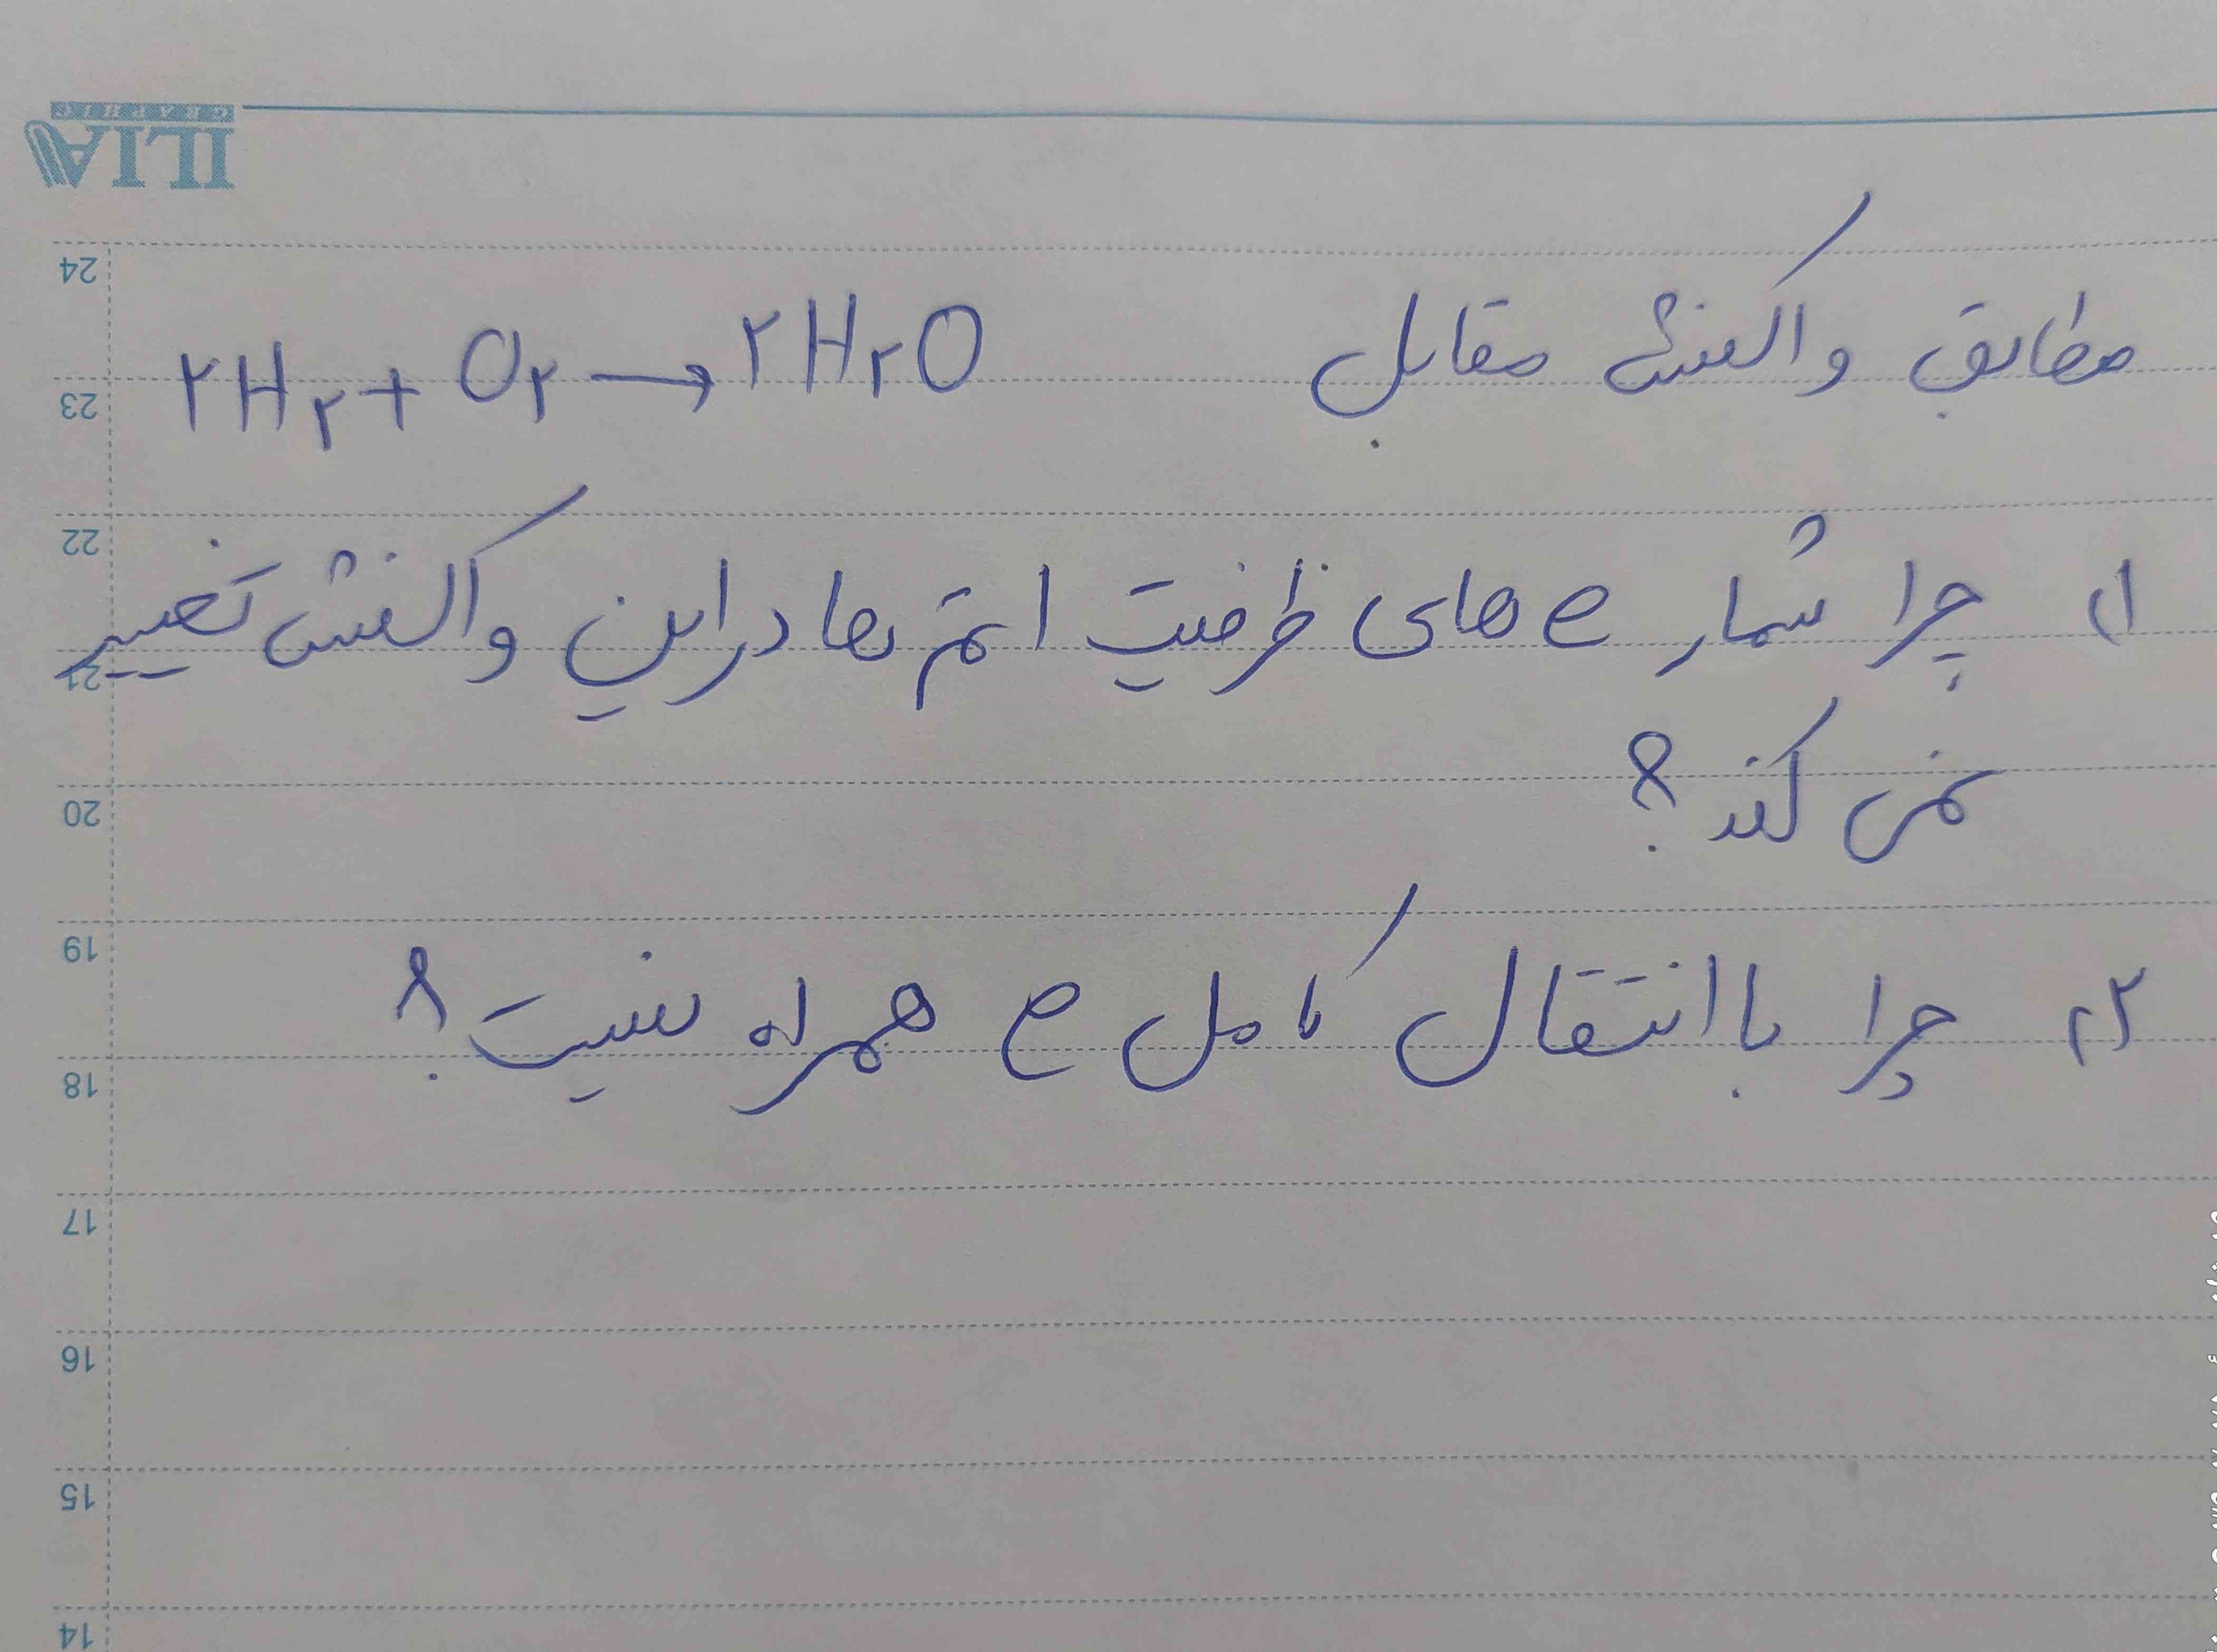 ILIA
GRAPHIC
مطابق واکنش مقابل ۲H۲ + O۲ → ۲H۲O
۱) چرا شمار e های ظرفیت اتم ها در این واکنش تغییر
نمی کند؟
۲) چرا با انتقال کامل e همراه نیست؟
24
23
22
21
20
19
18
17
16
15
14